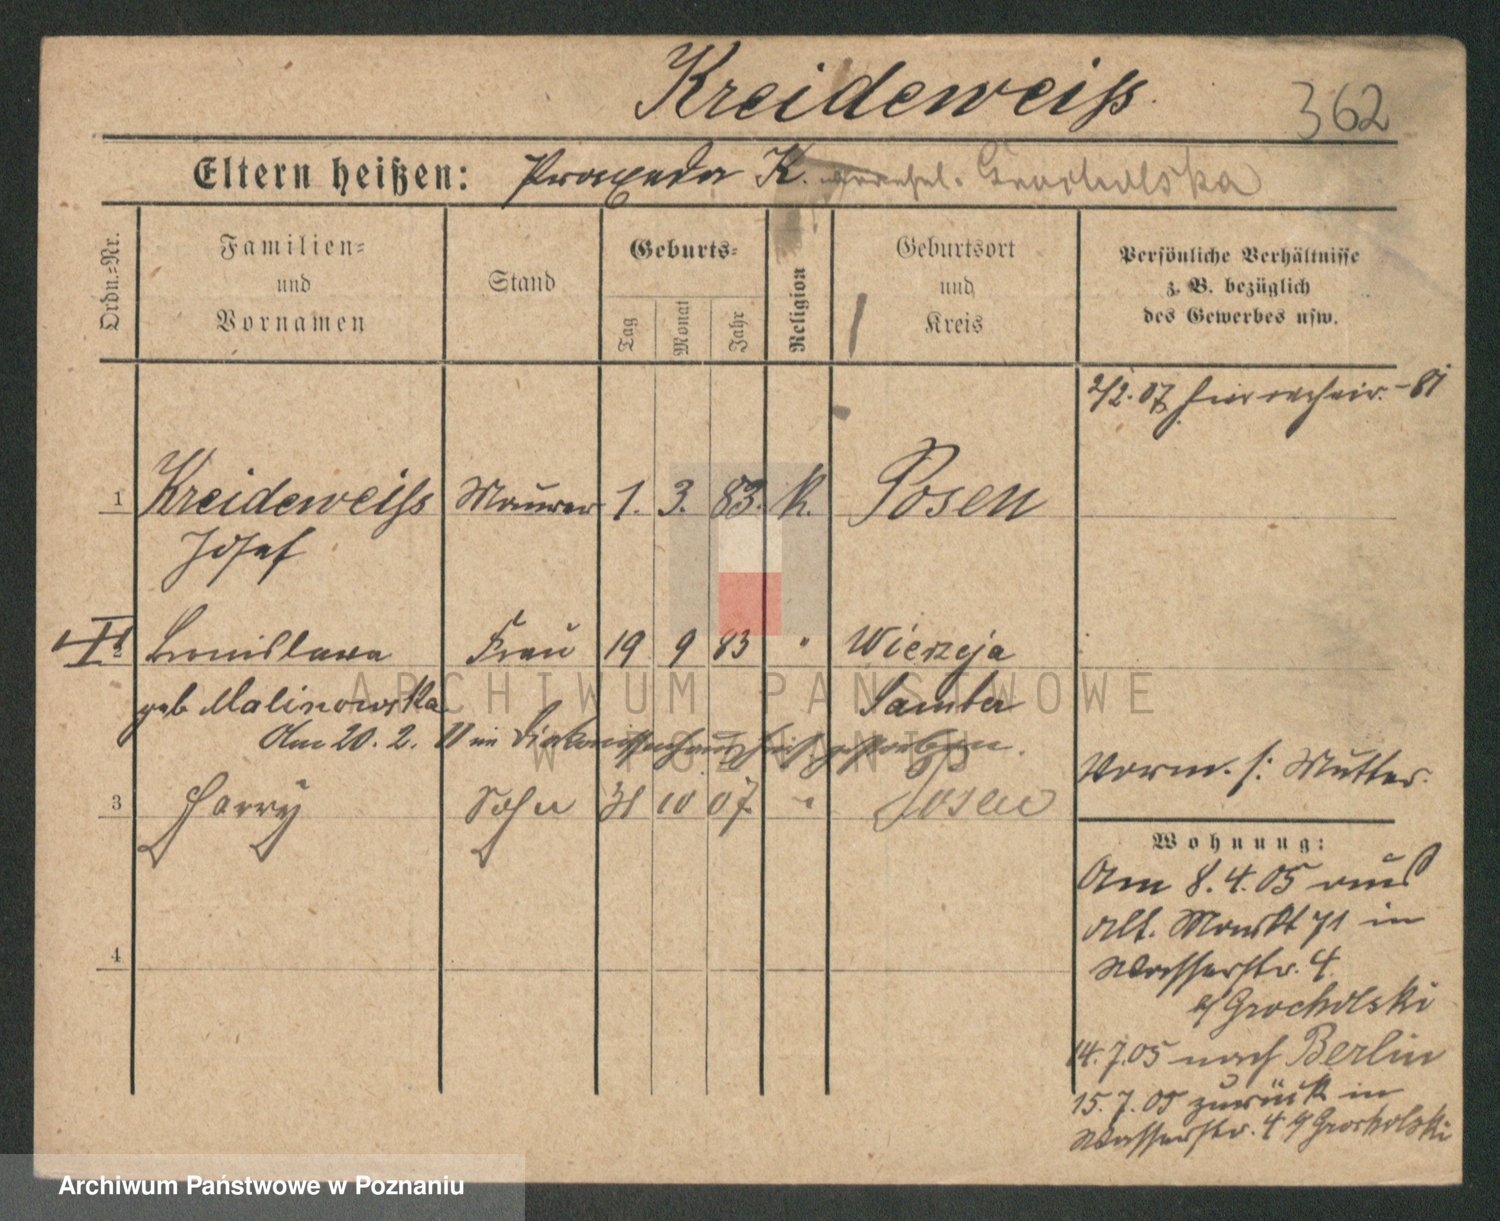 Kreideweiss
362
Eltern heißen: Praxeda K. Grocholska
Ordn.=Nr.
Familien=
und
Vornamen
Stand
Geburts=
Tag
Monat
Jahr
Religion
Geburtsort
und
Kreis
Persönliche Verhältnisse
z. B. bezüglich
des Gewerbes usw.
2/2. 07
1 Kreideweiss Maurer 1. 3. 83. k. Posen
Josef
2 Bronislawa Frau 19 9 83 " Wierzeja
geb Malinowska Samter
Am 20. 2. 11 im Diakonissenhaus hier gestorben.
Vorm. s: Mutter.
3 Harry Sohn 31 10 07. " Posen
Wohnung:
Am 8. 4. 05 aus
Alt. Markt 71 in
Wasserstr. 4.
b/ Grocholski
14. 7. 05 nach Berlin
15. 7. 05 zurück in
Wasserstr. 4 b/ Grocholski
4
ARCHIWUM PAŃSTWOWE
W POZNANIU
Archiwum Państwowe w Poznaniu